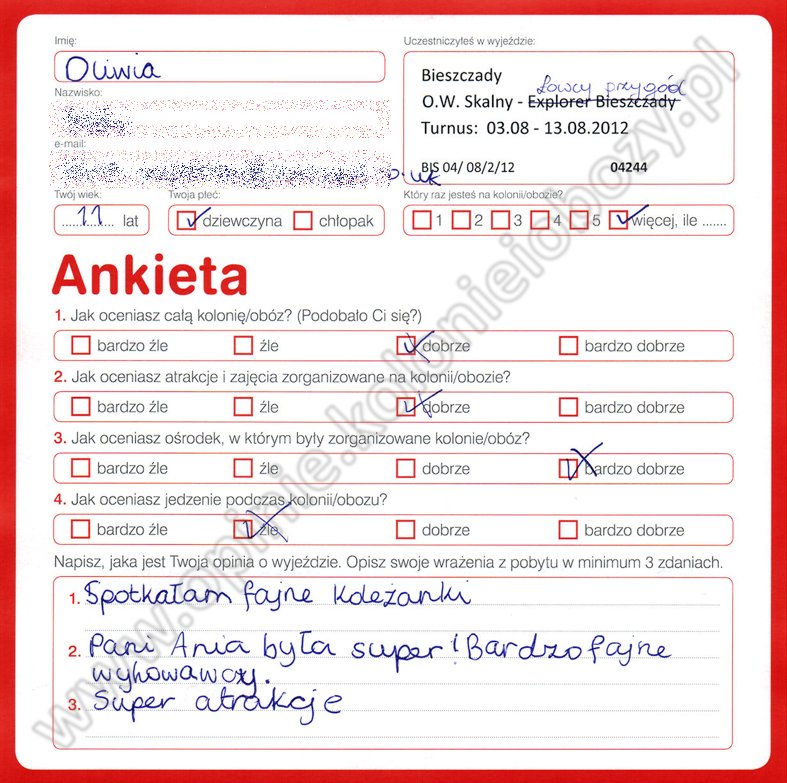 Imię:
Uczestniczyłeś w wyjeździe:
Oliwia
Bieszczady
Łowcy przygód
O.W. Skalny - Explorer Bieszczady
Turnus: 03.08 - 13.08.2012
BIS 04/ 08/2/12 04244
Nazwisko:
e-mail:
Twój wiek:
Twoja płeć:
Który raz jesteś na kolonii/obozie?
11 lat
dziewczyna chłopak
1 2 3 4 5 więcej, ile .......
Ankieta
1. Jak oceniasz całą kolonię/obóz? (Podobało Ci się?)
bardzo źle źle dobrze bardzo dobrze
2. Jak oceniasz atrakcje i zajęcia zorganizowane na kolonii/obozie?
bardzo źle źle dobrze bardzo dobrze
3. Jak oceniasz ośrodek, w którym były zorganizowane kolonie/obóz?
bardzo źle źle dobrze bardzo dobrze
4. Jak oceniasz jedzenie podczas kolonii/obozu?
bardzo źle źle dobrze bardzo dobrze
Napisz, jaka jest Twoja opinia o wyjeździe. Opisz swoje wrażenia z pobytu w minimum 3 zdaniach.
1. Spotkałam fajne koleżanki
2. Pani Ania była super! Bardzo fajne
wyhowawczy.
3. Super atrakcje
www.opinie.kolonieiobozy.pl